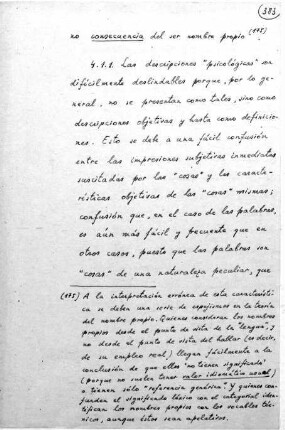 (383)
no consecuencia del ser nombre propio (175)
4.1.1. Las descripciones "psicológicas" son
difícilmente deslindables porque, por lo ge-
neral, no se presentan como tales, sino como
descripciones objetivas y hasta como definicio-
nes. Esto se debe a una fácil confusión
entre las impresiones subjetivas inmediatas
suscitadas por las "cosas" y las caracte-
rísticas objetivas de las "cosas" mismas;
confusión que, en el caso de las palabras,
es aún más fácil y frecuente que en
otros casos, puesto que las palabras son
"cosas" de una naturaleza peculiar, que
(175) A la interpretación errónea de esta característi-
ca se deben una serie de equívocos en la teoría
del nombre propio. Quienes consideran los nombres
propios desde el punto de vista de la "lengua", y
no desde el punto de vista del hablar (es decir,
de su empleo real) llegan fácilmente a la
conclusión de que ellos "no tienen significado"
(porque no suelen tener valor idiomático usual)
o tienen sólo "referencia genérica". Y quienes con-
funden el significado léxico con el categorial iden-
tifican los nombres propios con los vocablos téc-
nicos, aunque éstos sean apelativos.